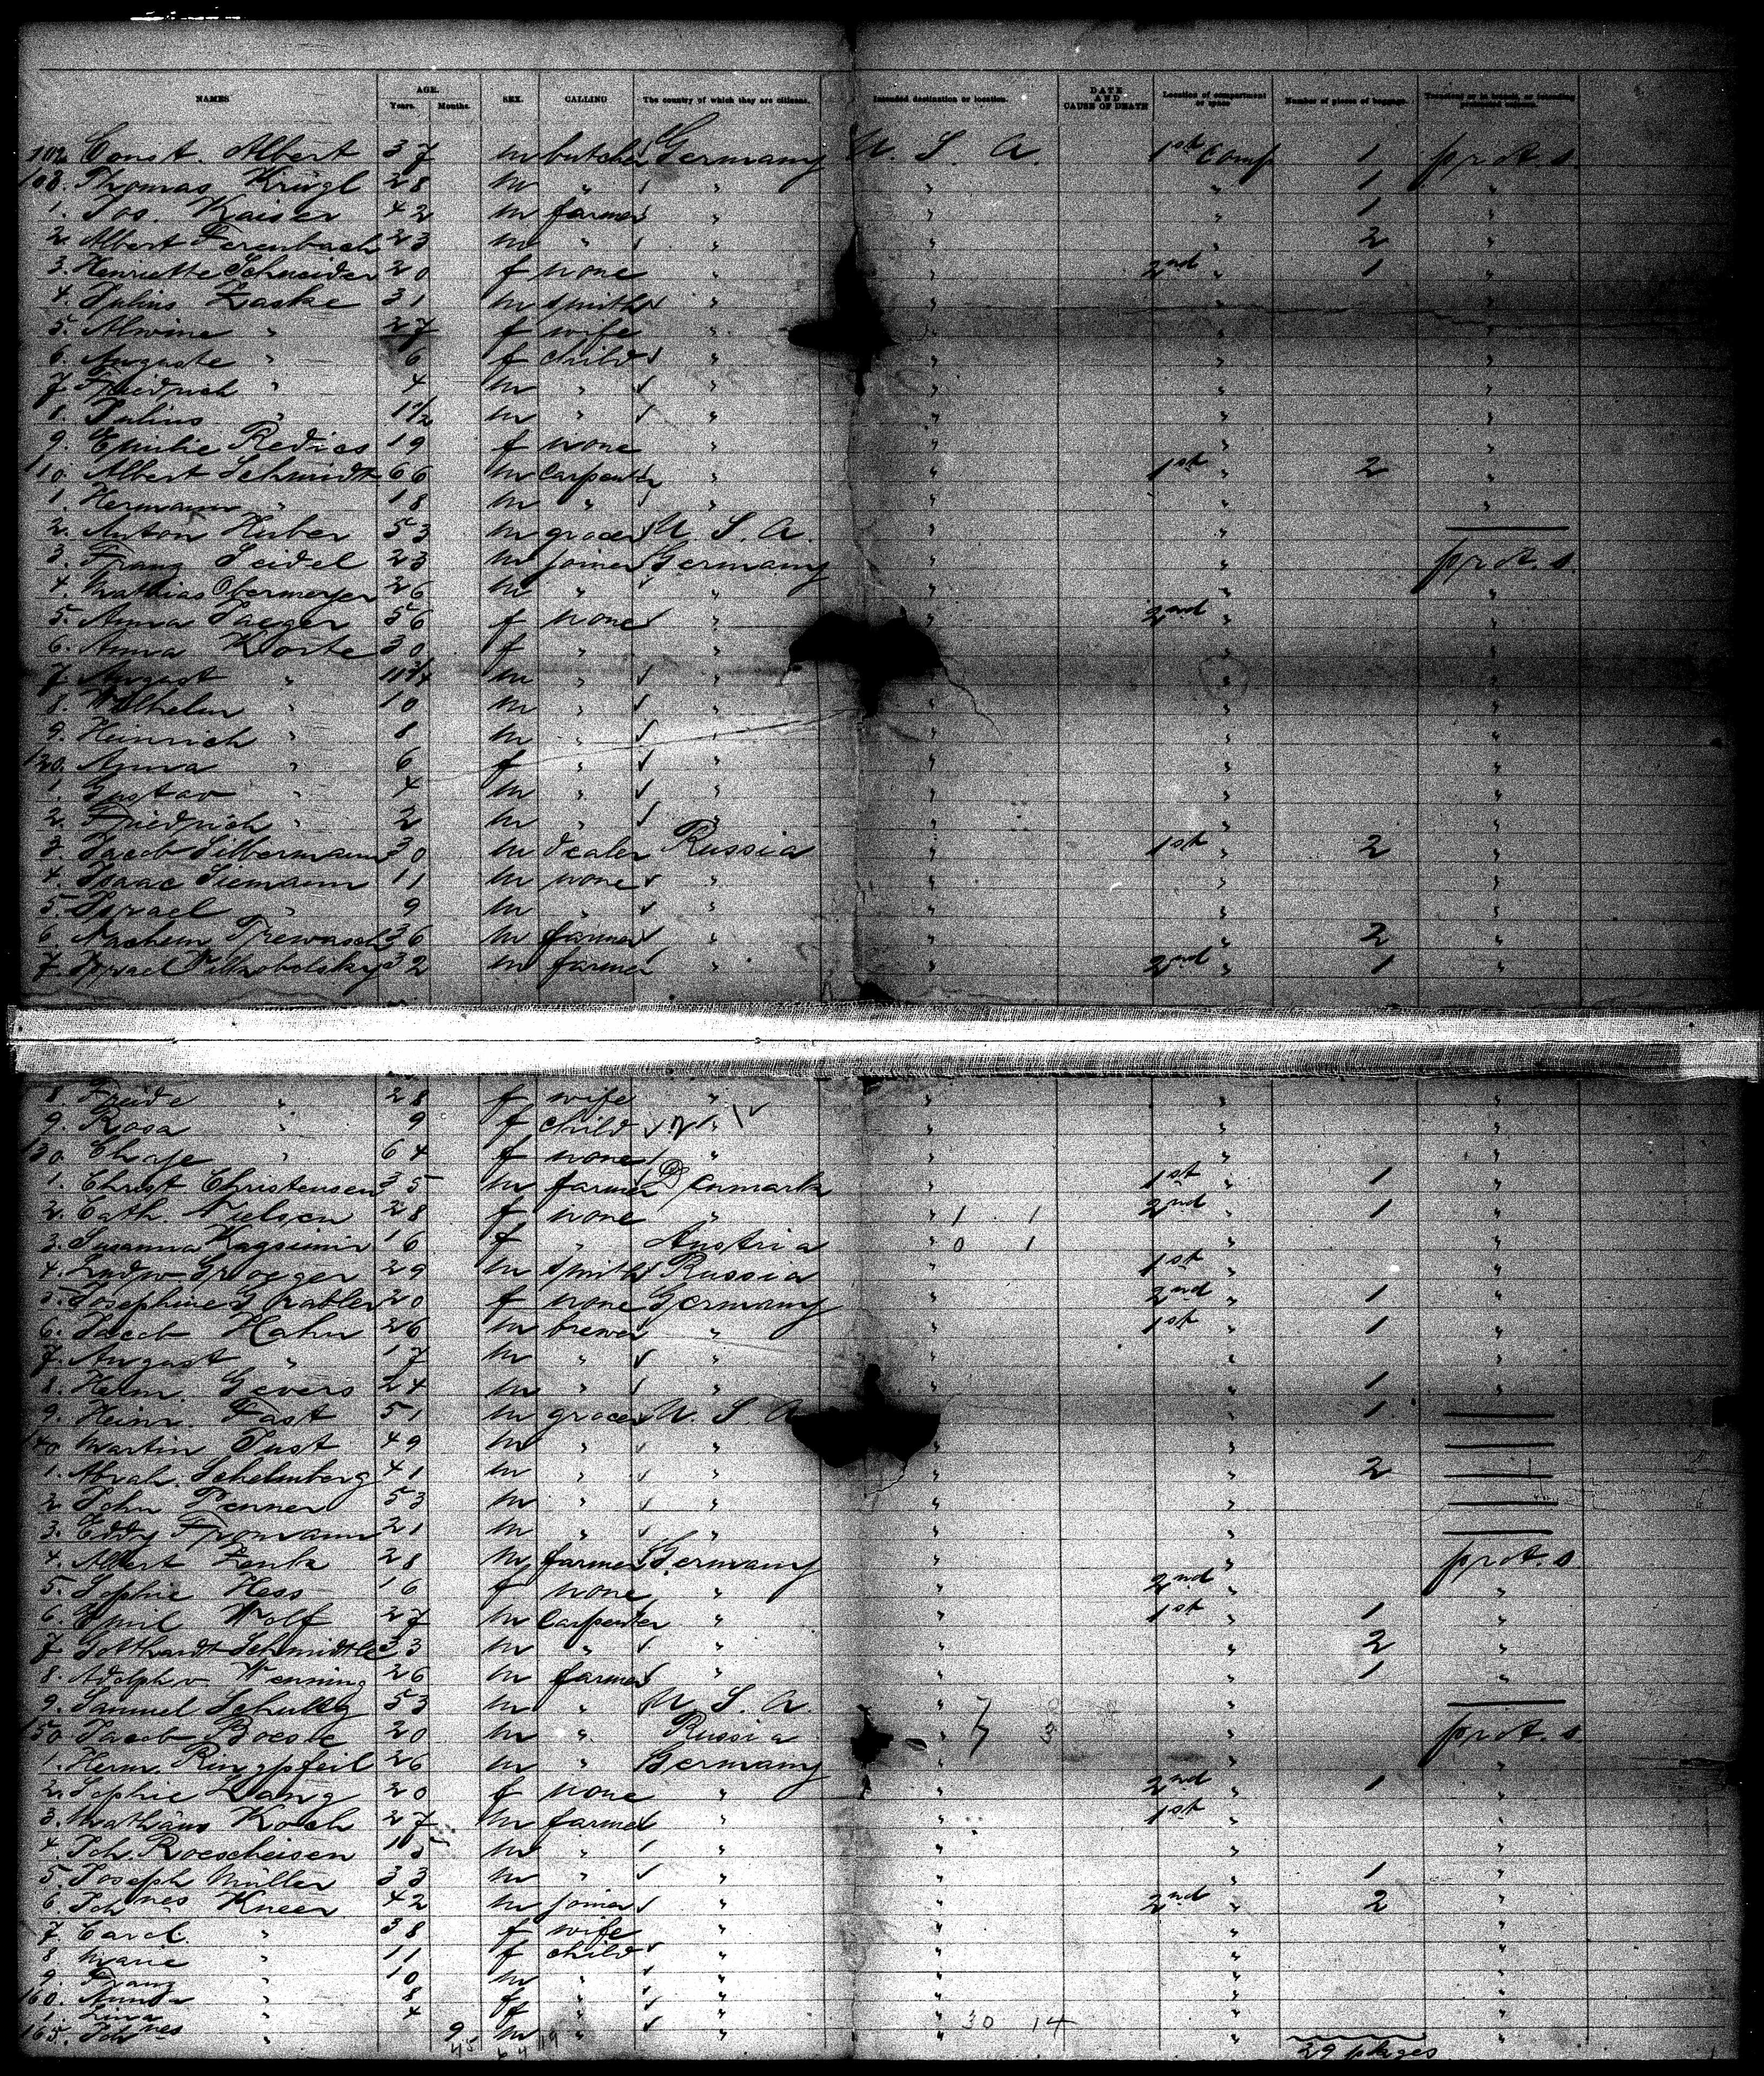 NAMES AGE. Years. Months. SEX. CALLING The country of which they are citizens. Intended destination or location. DATE AND CAUSE OF DEATH Location of compartment or space Number of pieces of baggage. Transient or in transit, or intending protracted sojourn.
102. Const. Albert 37 m butcher Germany U. S. A. 1st Comp 1 prot. s.
103. Thomas Krügl 28 m " " " " 1 "
1. Jos. Kaiser 42 m farmer " " " 1 "
2. Albert Ferenbach 23 m " " " " 2 "
3. Henriette Schneider 20 f none " " 2nd " 1 "
4. Julius Zaske 31 m smith " " " "
5. Alwine " 27 f wife " " " "
6. Auguste " 6 f child " " " "
7. Friedrich " 4 m " " " " "
8. Julius " 1 1/2 m " " " " "
9. Emilie Redies 19 f none " " " "
110. Albert Schmidt 66 m carpenter " " 1st " 2 "
1. Hermann " 18 m " " " " "
2. Anton Huber 53 m grocer U. S. A. " "
3. Franz Seidel 23 m joiner Germany " " prot. s.
4. Mathias Obermeyer 26 m " " " " "
5. Anna Jaeger 56 f none " " 2nd " "
6. Anna Korte 30 f " " " " "
7. August " 11 3/4 m " " " " "
8. Wilhelm " 10 m " " " " "
9. Heinrich " 8 m " " " " "
120. Anna " 6 f " " " " "
1. Gustav " 4 m " " " " "
2. Friedrich " 2 m " " " " "
3. Jacob Silbermann 30 m dealer Russia " 1st " 2 "
4. Isaac Siemann 11 m none " " " "
5. Israel " 9 m " " " " "
6. Nachem 36 m farmer " " " 2 "
7. Israel 32 m farmer " " 2nd " 1 "
8. Freide " 28 f wife " " " "
9. Rosa " 9 f child " " " "
130. Chaje " 64 f none " " " "
1. Christ. Christensen 35 m farmer Denmark " 1st " 1 "
2. Cath. Nielsen 28 f none " " 1 1 2nd " 1 "
3. Susanna 16 f " Austria " 0 1 " "
4. Ludw 29 m smith Russia " 1st " "
5. Josephine Grabler 20 f none Germany " 2nd " 1 "
6. Jacob Hahn 26 m brewer " " 1st " 1 "
7. August " 17 m " " " " "
8. Herm. Gevers 24 m " " " " 1 "
9. Heinr. Fast 51 m grocer U. S. A. " " 1
140. Martin Just 49 m " " " "
1. Abrah. Schelenberg 41 m " " " " 2
2. John Penner 53 m " " " "
3. Eddy Fromann 21 m " " " "
4. Albert Zenk 28 m farmer Germany " " prot. s.
5. Sophie Hess 16 f none " " 2nd " "
6. Emil Wolf 27 m carpenter " " 1st " 1 "
7. Gotthardt Schmidtle 33 m " " " " 2 "
8. Adolph v. Wenning 26 m farmer " " " 1 "
9. Samuel 53 m " U. S. A. " "
150. Jacob Boese 20 m " Russia " 7 3 " prot. s.
1. Herm. Ringpfeil 26 m " Germany " " "
2. Sophie Lang 20 f none " " 2nd " 1 "
3. Mathäus Koch 27 m farmer " " 1st " "
4. Joh. Roescheisen 15 m " " " " "
5. Joseph Müller 33 m " " " " 1 "
6. Johnes Kneer 42 m joiner " " 2nd " 2 "
7. Carol. " 38 f wife " " " "
8. Marie " 11 f child " " " "
9. Franz " 10 m " " " " "
160. Anna " 8 f " " " " "
1. Lina " 4 f " " " " "
Johnes " 9 m " " " 30 14 " "
29 pkges